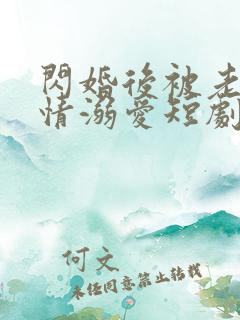 閃婚後被老
情溺愛短劇
何文
未經同意禁止轉載